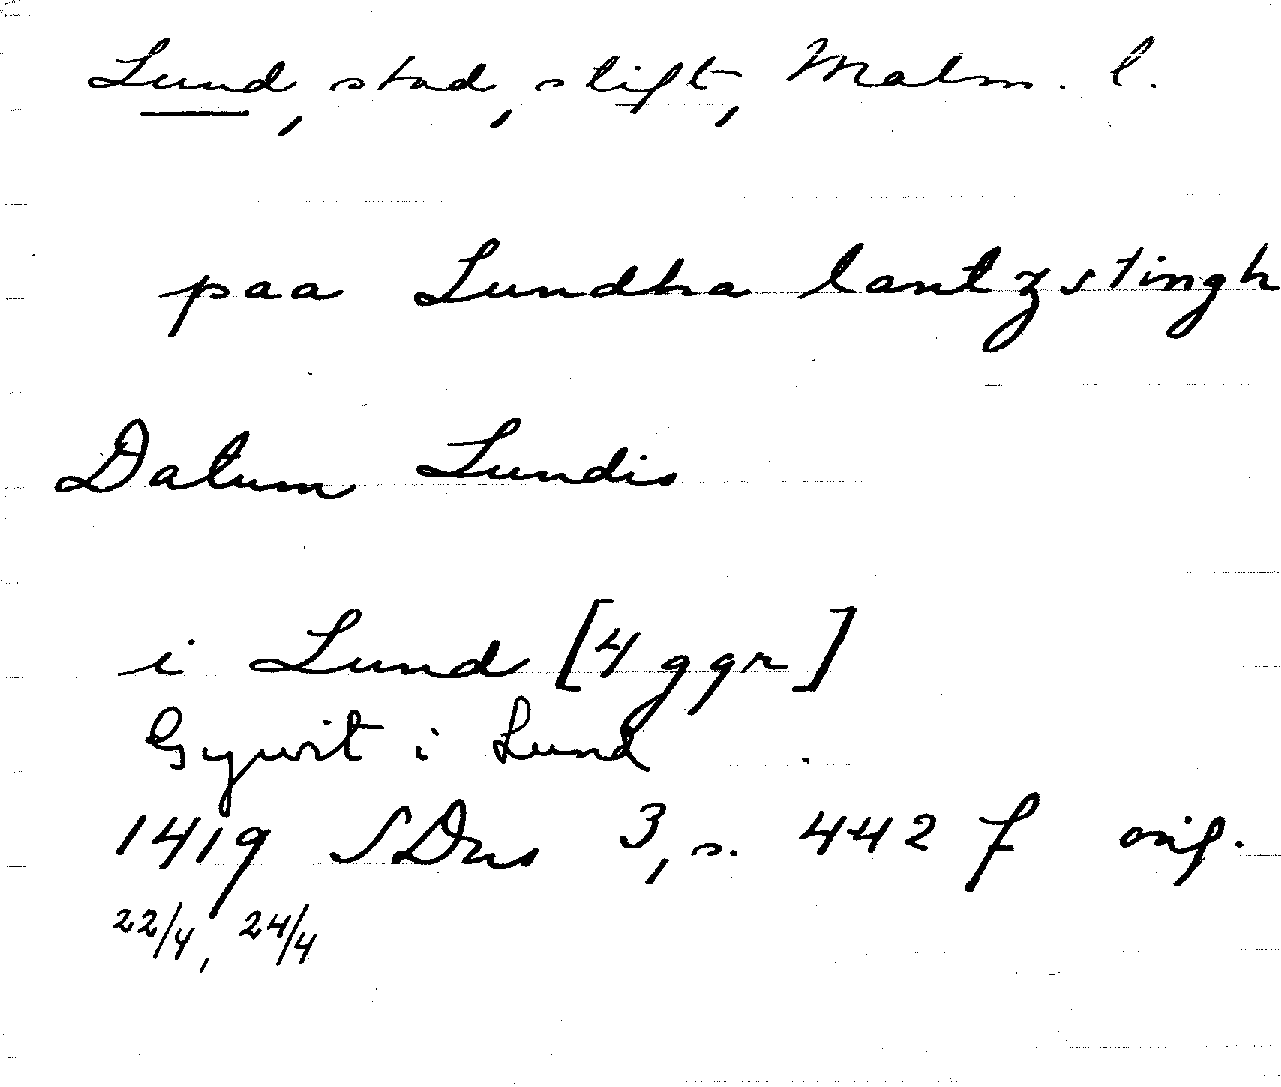 Lund, stad, stift, Malm. l.
paa Lundha lantzstingh
Datum Lundis
i Lund [4 ggr]
Gywit i Lund
1419 SDns 3, s. 442 f orig.
22/4, 24/4